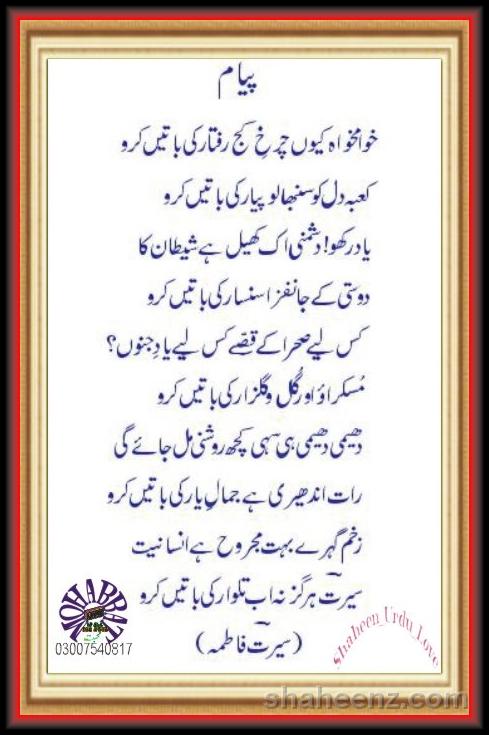 پیام
خوامخواہ کیوں چرخِ کج رفتار کی باتیں کرو
کعبہ دل کو سنبھالو پیار کی باتیں کرو
یاد رکھو! دشمنی اک کھیل ہے شیطان کا
دوستی کے جانفزا سنسار کی باتیں کرو
کس لیے صحرا کے قصے کس لیے یادِ جنوں؟
مُسکراؤ اور گُل و گلزار کی باتیں کرو
دھیمی دھیمی ہی سہی کچھ روشنی مل جائے گی
رات اندھیری ہے جمالِ یار کی باتیں کرو
زخم گہرے بہت مجروح ہے انسانیت
سیرتؔ ہرگز نہ اب تلوار کی باتیں کرو
(سیرتؔ فاطمہ)
MOHABBAT
03007540817
Shaheen_Urdu_Love
shaheenz.com